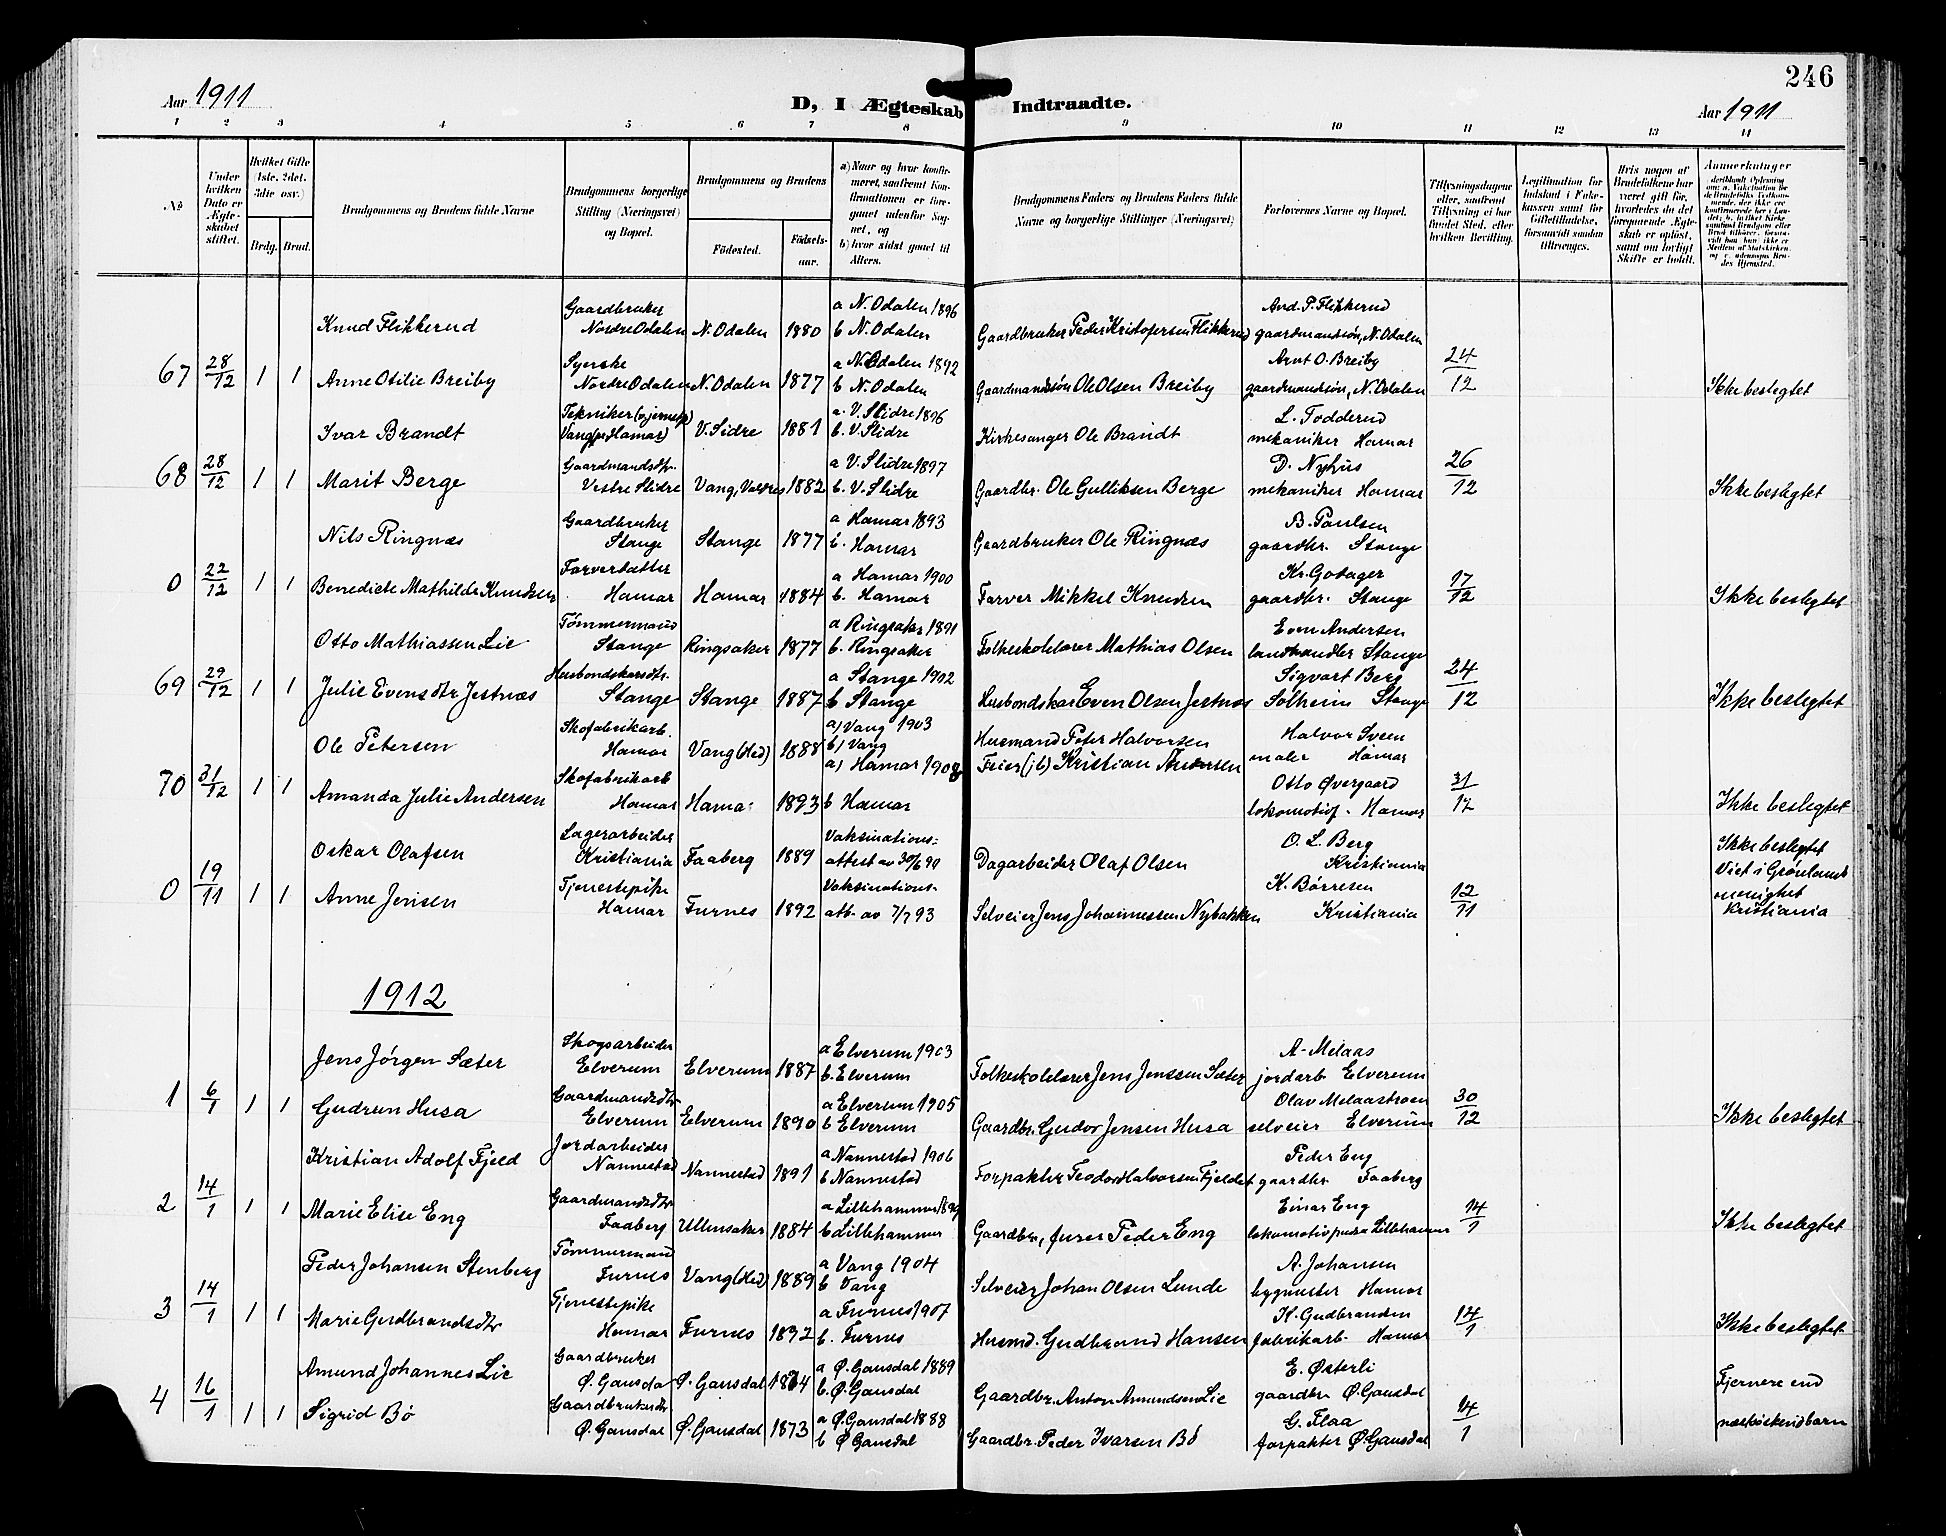 246
Aar 1911
D, I Ægteskab Indtraadte.
Aar 1911
1 2 3 4 5 6 7 8 9 10 11 12 13 14
No
Under hvilken Dato er Ægteskabet stiftet.
Hvilket Gifte (1ste, 2det, 3die osv.)
Brdg. Brud.
Brudgommens og Brudens fulde Navne
Brudgommens borgerlige Stilling (Næringsvei) og Bopæl.
Brudgommens og Brudens
Fødested.
Fødsels-aar.
a) Naar og hvor konfirmeret, saafremt Konfirmationen er foregaaet udenfor Sognet, og
b) hvor sidst gaaet til Alters.
Brudgommens Faders og Brudens Faders fulde Navne og borgerlige Stillinger (Næringsvei)
Forlovernes Navne og Bopæl.
Tillysningsdagene eller, saafremt Tillysning ei har fundet Sted, efter hvilken Bevilling.
Legitimation for Indskud i Enkekassen samt for Giftetilladelse, forsaavidt saadan tiltrænges.
Hvis nogen af Brudefolkene har været gift før, hvorledes da det foregaaende Ægteskab er opløst, samt om lovligt Skifte er holdt.
Anmerkninger
Knud Flikkerud Gaardbruker Nordre Odalen N. Odalen 1880 a N. Odalen 1896 b N. Odalen Gaardbruker Peder Kristofersen Flikkerud And. P. Flikkerud gaardmandssøn, N. Odalen
67 28/12 1 1 Anne Otilie Breiby Syerske Nordre Odalen N. Odalen 1877 a N. Odalen 1892 b N. Odalen Gaardmandssøn Ole Olsen Breiby Arnt O. Breiby gaardmandssøn, N. Odalen 24/12 Ikke beslegtet
Ivar Brandt Tekniker Vang pr Hamar) V. Slidre 1881 a. V. Slidre 1896 b. V. Slidre Kirkesanger Ole Brandt L. Todderud mekaniker Hamar
68 28/12 1 1 Marit Berge Gaardmandsdtr. Vestre Slidre Vang, Valdres 1882 a V. Slidre 1897 b. V. Slidre Gaardbr. Ole Gulliksen Berge D. Nyhus mekaniker Hamar 26/12 Ikke beslegtet
Nils Ringnæs Gaardbruker Stange Stange 1877 a Hamar 1893 b. Hamar Gaardbruker Ole Ringnæs B. Paulsen gaardbr. Stange
0 22/12 1 1 Benedicte Mathilde Knudsen Farverdatter Hamar Hamar 1884 a Hamar 1900 b. Hamar Farver Mikkel Knudsen Kr. Gotager gaardbr. Stange 17/12 Ikke beslegtet
Otto Mathiassen Lie Tømmermand Stange Ringsaker 1877 a Ringsaker 1891 b. Ringsaker Folkeskolelærer Mathias Olsen Even Andersen landhandler Stange
69 29/12 1 1 Julie Evensdtr Jestnæs Husbondskarsdtr. Stange Stange 1887 a Stange 1902 b Stange Husbondskar Even Olsen Jestnæs Sigvart Berg Solheim Stange 24/12 Ikke beslegtet
Ole Petersen Skofabrikarb. Hamar Vang (Hed) 1888 a) Vang 1903 b) Vang Husmand Peter Halvorsen Halvor Ivsen maler Hamar
70 31/12 1 1 Amanda Julie Andersen Skofabrikarb Hamar Hamar 1893 a) Hamar 1908 b Hamar Feier (jb) Kristian Andersen Otto Øvergaard lokomotivf. Hamar 31/12 Ikke beslegtet
Oskar Olafsen Lagerarbeider Kristiania Faaberg 1889 Vaksinations-attest av 30/6 90 Dagarbeider Olaf Olsen O. L. Berg Kristiania Ikke beslegtet
0 19/11 1 1 Anne Jensen Tjenestepike Hamar Furnes 1892 Vaksinations-att. av 7/7 93 Selveier Jens Johannessen Nybakken K. Børresen Kristiania 12/11 Viet i Grønlands menighet Kristiania
1912
Jens Jørgen Sæter Skogsarbeider Elverum Elverum 1887 a Elverum 1903 b. Elverum Folkeskolelærer Jens Jenssen Sæter A. Melaas jordarb Elverum
1 6/1 1 1 Gudrun Husa Gaardmandsdtr Elverum Elverum 1890 a Elverum 1905 b Elverum Gaardbr. Gudor Jensen Husa Olav Melaastroen selveier Elverum 30/12 Ikke beslegtet
Kristian Adolf Fjeld Jordarbeider Nannestad Nannestad 1891 a Nannestad 1906 b Nannestad Forpakter Teodor Halvorsen Fjeldet Peder Eng gaardbr Faaberg
2 14/1 1 1 Marie Elise Eng Gaardmandsdtr Faaberg Ullensaker 1884 a Lillehammer 1899 b Lillehammer Gaardbr, Peder Eng Einar Eng lokomotivpuss Lillehammer 14/1 Ikke beslegtet
Peder Johansen Stenberg Tømmermand Furnes Vang (Hed) 1889 a Vang 1904 b Vang Selveier Johan Olsen Lunde A. Johansen bygmester Hamar
3 14/1 1 1 Marie Gudbrandsdtr Tjenestepike Hamar Furnes 1892 a Furnes 1907 b. Furnes Husmd. Gudbrand Hansen K. Gudbrandsen fabrikarb. Hamar 14/1 Ikke beslegtet
Amund Johannes Lie Gaardbruker Ø. Gausdal Ø. Gausdal 1874 a Ø. Gausdal 1889 b. Ø. Gausdal Gaardbr. Anton Amundsen Lie E. Østerli gaardbr Ø. Gausdal Fjernere end
4 16/1 1 1 Sigrid Bø Gaardbrukerdtr Ø. Gausdal Ø. Gausdal 1873 a Ø. Gausdal 1888 b Ø Gausdal Gaardbr. Peder Ivarsen Bø G. Flaa forpakter Ø. Gausdal 14/1 næstsøskendbarn